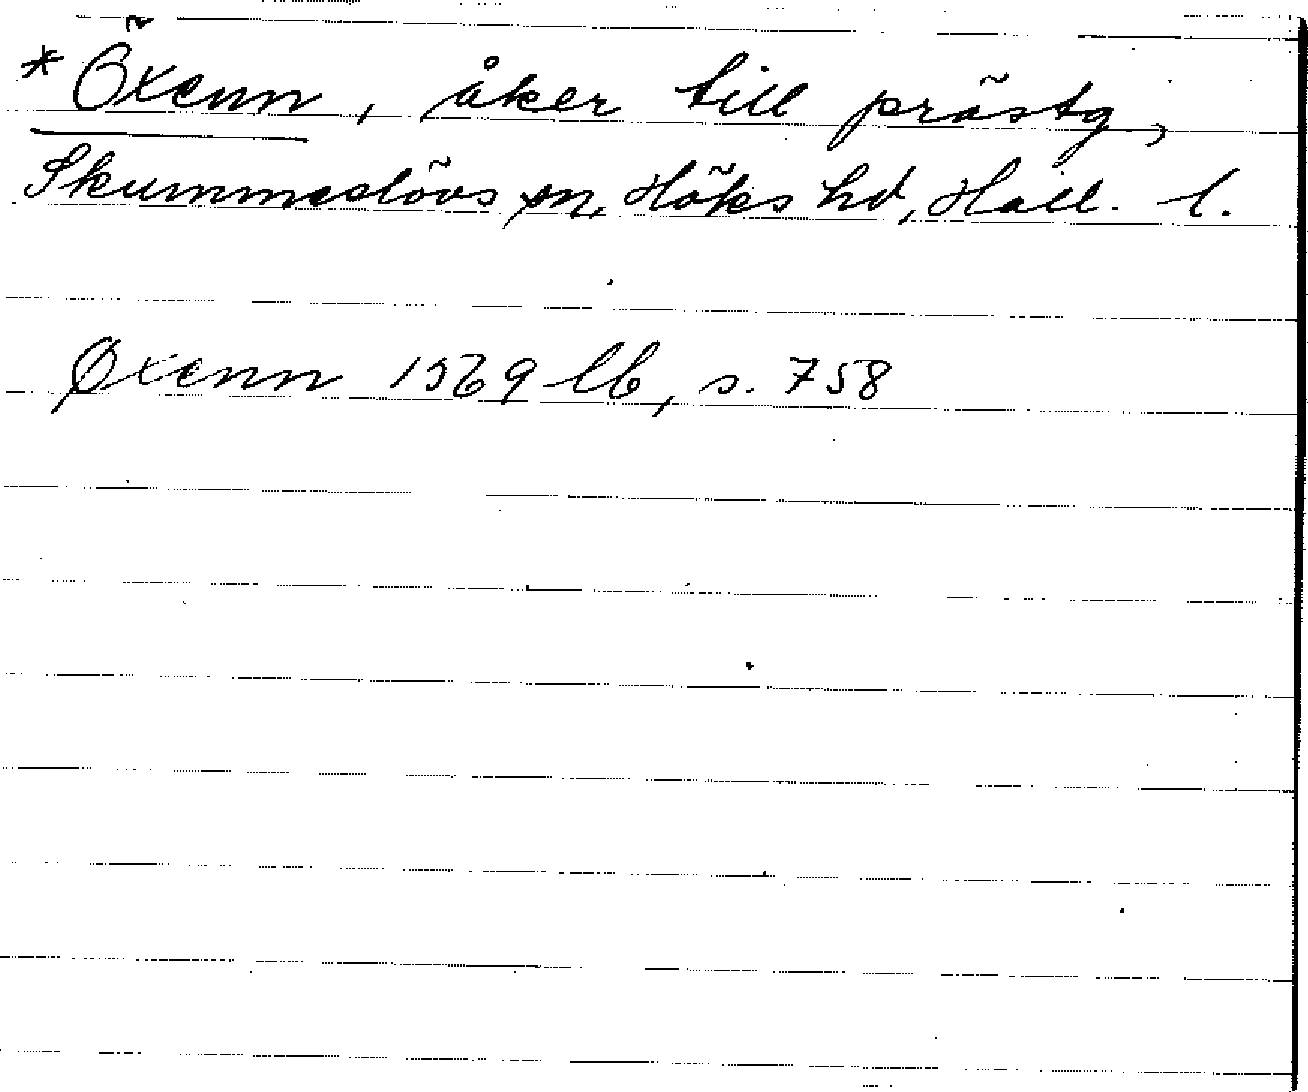 *Öxenn, åker till prästg,
Skummeslövs sn, Höks hd, Hall. l.
Øxenn 1569 lb, s. 758